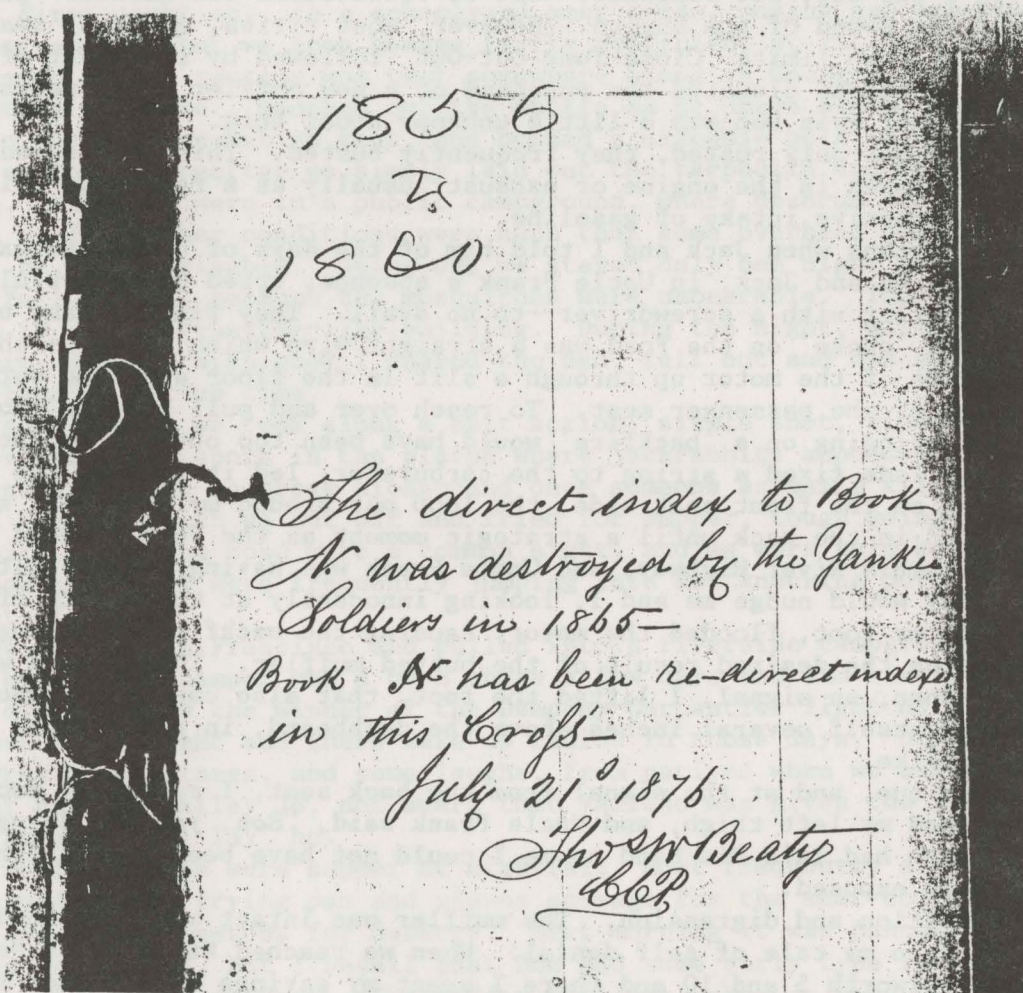 1856
To
1860
The direct index to Book
N. was destroyed by the Yankee
Soldiers in 1865=
Book N has been re-direct indexed
in this Cross—
July 21s 1876.
Thos W Beaty
CCP.